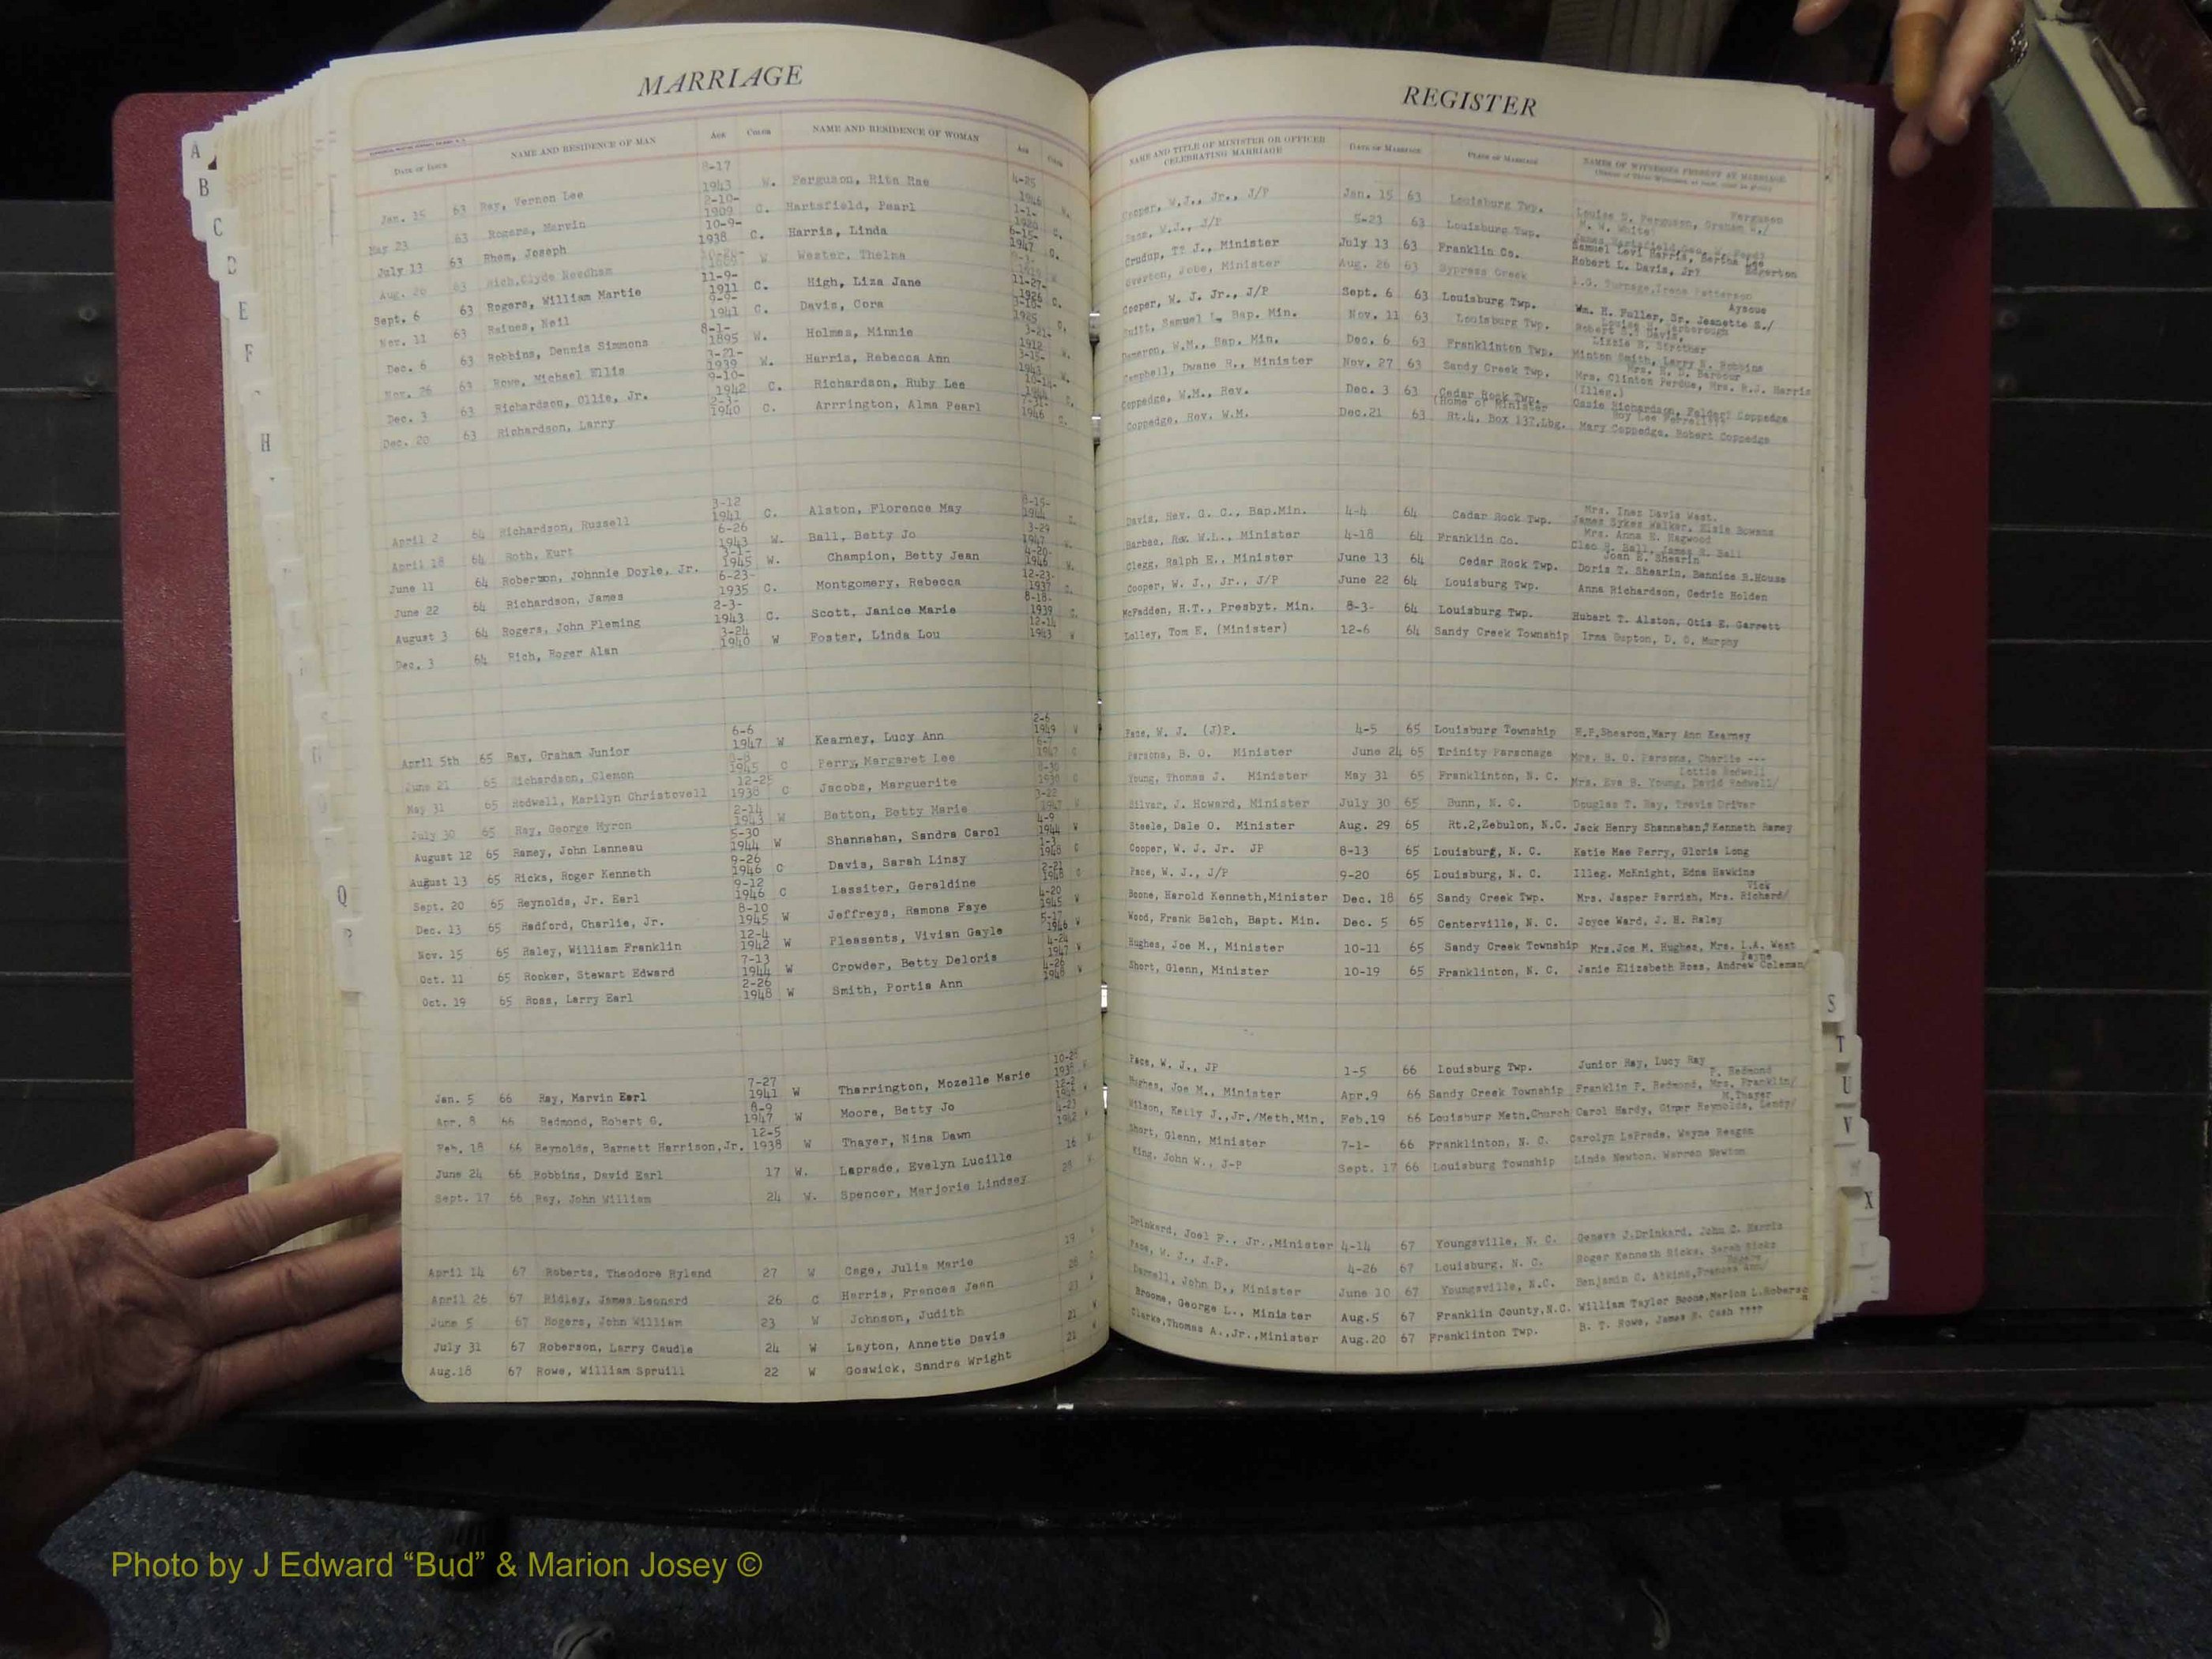 MARRIAGE
REGISTER
DATE OF ISSUE NAME AND RESIDENCE OF MAN AGE COLOR NAME AND RESIDENCE OF WOMAN AGE COLOR
NAME AND TITLE OF MINISTER OR OFFICER CELEBRATING MARRIAGE DATE OF MARRIAGE PLACE OF MARRIAGE NAMES OF WITNESSES PRESENT AT MARRIAGE
Jan. 15 63 Ray, Vernon Lee 8-17 1943 W. Ferguson, Rita Rae 4-25 1946 W. Cooper, W.J., Jr., J/P Jan. 15 63 Louisburg Twp. Louise S. Ferguson, Graham W./ Ferguson W. W. White
May 23 63 Rogers, Marvin 2-10- 1909 C. Hartsfield, Pearl 1-1- 1920 C. W.J., J/P 5-23 63 Louisburg Twp.
July 13 63 Rhem, Joseph 10-9- 1938 C. Harris, Linda 6-15- 1947 C. Crudup, T? J., Minister July 13 63 Franklin Co. Samuel Levi Harris, Bertha Lee Edgerton Robert L. Davis, Jr?
Aug. 26 63 Rich, Clyde Needham W Wester, Thelma Overton, Jobe, Minister Aug. 26 63 Sypress Creek L.G. Turnage, Irene Patterson
Sept. 6 63 Rogers, William Martie 11-9- 1911 C. High, Liza Jane 11-27- 1926 C. Cooper, W. J. Jr., J/P Sept. 6 63 Louisburg Twp. Wm. H. Fuller, Sr. Jeanette S./ Ayscue
Nov. 11 63 Raines, Neil 9-9- 1941 C. Davis, Cora 1925 C. Samuel L. Bap. Min. Nov. 11 63 Louisburg Twp. Robert S.? Davis, Lizzie B. Strother
Dec. 6 63 Robbins, Dennis Simmons 8-1- 1895 W. Holmes, Minnie 3-21- 1912 W. Dameron, W.M., Bap. Min. Dec. 6 63 Franklinton Twp. Minton Smith, Larry N. Robbins
Nov. 26 63 Rowe, Michael Ellis 3-21- 1939 W. Harris, Rebecca Ann 3-15- 1943 W. Campbell, Dwane R., Minister Nov. 27 63 Sandy Creek Twp. Mrs. Clinton Perdue, Mrs. R.J. Harris
Dec. 3 63 Richardson, Ollie, Jr. 9-10- 1942 C. Richardson, Ruby Lee 10-14- C. Coppedge, W.M., Rev. Dec. 3 63 Cedar Rock Twp. (Home of Minister (Illeg.) Ozzie Richardson, Felder? Coppedge
Dec. 20 63 Richardson, Larry 2-3- 1940 C. Arrrington, Alma Pearl 7-31- 1946 C. Coppedge, Rev. W.M. Dec.21 63 Rt.4, Box 137, Lbg. Mary Coppedge, Robert Coppedge
April 2 64 Richardson, Russell 3-12 1941 C. Alston, Florence May 8-15- 1944 C. Davis, Rev. G. C., Bap.Min. 4-4 64 Cedar Rock Twp. Mrs. Inez Davis West. James Sykes Walker, Elsie Bowens
April 18 64 Roth, Kurt 6-26 1943 W. Ball, Betty Jo 3-29 1947 W. Barbee, Rev. W.L., Minister 4-18 64 Franklin Co. Mrs. Anna E. Hagwood Cleo R. Ball, James R. Ball
June 11 64 Roberson, Johnnie Doyle, Jr. 3-1- 1945 W. Champion, Betty Jean 4-20- 1946 W. Clegg, Ralph E., Minister June 13 64 Cedar Rock Twp. Joan E. Shearin Doris T. Shearin, Bennice R.House
June 22 64 Richardson, James 6-23- 1935 C. Montgomery, Rebecca 12-23- 1937 C. Cooper, W. J., Jr., J/P June 22 64 Louisburg Twp. Anna Richardson, Cedric Holden
August 3 64 Rogers, John Fleming 2-3- 1943 C. Scott, Janice Marie 8-18- 1939 C. McFadden, H.T., Presbyt. Min. 8-3- 64 Louisburg Twp. Hubert T. Alston, Otis E. Garrett
Dec. 3 64 Rich, Roger Alan 3-24 1940 W Foster, Linda Lou 12-14 1943 W Lolley, Tom E. (Minister) 12-6 64 Sandy Creek Township Irma Gupton, D. O. Murphy
April 5th 65 Ray, Graham Junior 6-6 1947 W Kearney, Lucy Ann 2-6 1949 W Pace, W. J. (J)P. 4-5 65 Louisburg Township H.P.Shearon,Mary Ann Kearney
June 21 65 Richardson, Clemon 1945 C Perry, Margaret Lee 6-7 1947 C Parsons, B. O. Minister June 24 65 Trinity Parsonage Mrs. B. O. Parsons, Charlie ---
May 31 65 Rodwell, Marilyn Christovell 12-25 1938 C Jacobs, Marguerite 8-30 C Young, Thomas J. Minister May 31 65 Franklinton, N. C. Lottie Rodwell Mrs. Eva B. Young, David Rodwell/
July 30 65 Ray, George Myron 2-14 1943 W Batton, Betty Marie 3-22 1947 W Silver, J. Howard, Minister July 30 65 Bunn, N. C. Douglas T. Ray, Travis Driver
August 12 65 Ramey, John Lanneau 5-30 1944 W Shannahan, Sandra Carol 4-9 1944 W Steele, Dale O. Minister Aug. 29 65 Rt.2,Zebulon, N.C. Jack Henry Shannahan,? Kenneth Ramey
August 13 65 Ricks, Roger Kenneth 9-26 1946 C Davis, Sarah Linsy 1-3 1948 C Cooper, W. J. Jr. JP 8-13 65 Louisburg, N. C. Katie Mae Perry, Gloria Long
Sept. 20 65 Reynolds, Jr. Earl 9-12 1946 C Lassiter, Geraldine 2-21 1948 C Pace, W. J., J/P 9-20 65 Louisburg, N. C. Illeg. McKnight, Edna Hawkins
Dec. 13 65 Radford, Charlie, Jr. 8-10 1945 W Jeffreys, Ramona Faye 4-20 1945 W Boone, Harold Kenneth,Minister Dec. 18 65 Sandy Creek Twp. Mrs. Jasper Parrish, Mrs. Richard/ Vick
Nov. 15 65 Raley, William Franklin 12-4 1942 W Pleasents, Vivian Gayle 5-17 1946 W Wood, Frank Balch, Bapt. Min. Dec. 5 65 Centerville, N. C. Joyce Ward, J. H. Raley
Oct. 11 65 Rooker, Stewart Edward 7-13 1944 W Crowder, Betty Deloris 4-24 1947 W Hughes, Joe M., Minister 10-11 65 Sandy Creek Township Mrs.Joe M. Hughes, Mrs. I.A. West
Oct. 19 65 Ross, Larry Earl 2-26 1948 W Smith, Portia Ann 4-26 1948 W Short, Glenn, Minister 10-19 65 Franklinton, N. C. Janie Elizabeth Ross, Andrew Coleman/ Payne
Jan. 5 66 Ray, Marvin Earl 7-27 1941 W Tharrington, Mozelle Marie W Pace, W. J., JP 1-5 66 Louisburg Twp. Junior Ray, Lucy Ray
Apr. 8 66 Redmond, Robert G. 8-9 1947 W Moore, Betty Jo 12-2 W Hughes, Joe M., Minister Apr.9 66 Sandy Creek Township Franklin P. Redmond, Mrs. Franklin/ P. Redmond
Feb. 18 66 Reynolds, Barnett Harrison,Jr. 12-5 1938 W Thayer, Nina Dawn 4-23 1942 W Wilson, Kelly J.,Jr./Meth.Min. Feb.19 66 Louisburg Meth.Church Carol Hardy, Ginger Reynolds, Landy/ M.Thayer
June 24 66 Robbins, David Earl 17 W. Laprade, Evelyn Lucille 16 W. Short, Glenn, Minister 7-1- 66 Franklinton, N. C. Carolyn LaPrade, Wayne Reagan
Sept. 17 66 Ray, John William 24 W. Spencer, Marjorie Lindsey W. King, John W., J-P Sept. 17 66 Louisburg Township Linda Newton, Warren Newton
April 14 67 Roberts, Theodore Ryland 27 W Cage, Julia Marie 19 W Drinkard, Joel F., Jr.,Minister 4-14 67 Youngsville, N. C. Geneva J.Drinkard, John C. Harris
April 26 67 Ridley, James Leonard 26 C Harris, Frances Jean C Pace, W. J., J.P. 4-26 67 Louisburg, N. C. Roger Kenneth Ricks, Sarah Ricks
June 5 67 Rogers, John William 23 W Johnson, Judith W Darnell, John D., Minister June 10 67 Youngsville, N.C. Benjamin C. Atkins,Frances Ann/ Rogers
July 31 67 Roberson, Larry Caudle 24 W Layton, Annette Davis 21 W Broome, George L., Minister Aug.5 67 Franklin County,N.C. William Taylor Boone,Marion L.Roberson
Aug.18 67 Rowe, William Spruill 22 W Goswick, Sandra Wright 21 W Clarke,Thomas A.,Jr.,Minister Aug.20 67 Franklinton Twp. B. T. Rowe, James B. Cash ????
A
B
C
D
E
F
H
Q
S
T
U
V
W
X
Photo by J Edward “Bud” & Marion Josey ©